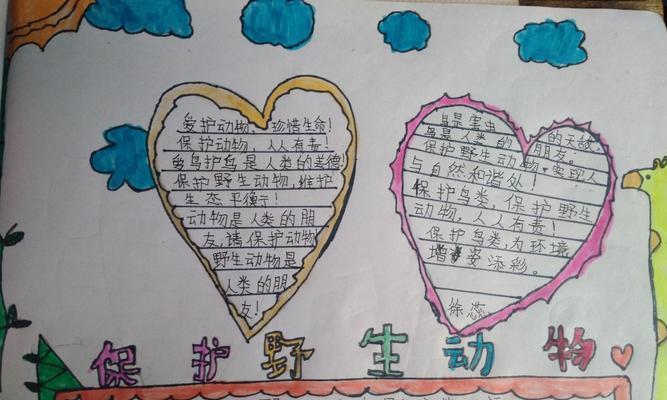 爱护动物、珍惜生命!
保护动物,人人有责!
爱鸟护鸟是人类的美德!
保护野生动物,维护
生态平衡!
动物是人类的朋
友,请保护动物
野生动物是
人类的朋
友!
鸟是害虫的天敌
鸟是人类的朋友。
保护野生动物,实现人
与自然和谐处!
保护鸟类,保护野生
动物,人人有责!
保护鸟类,为环境
增姿添彩。
徐蕊
保护野生动物